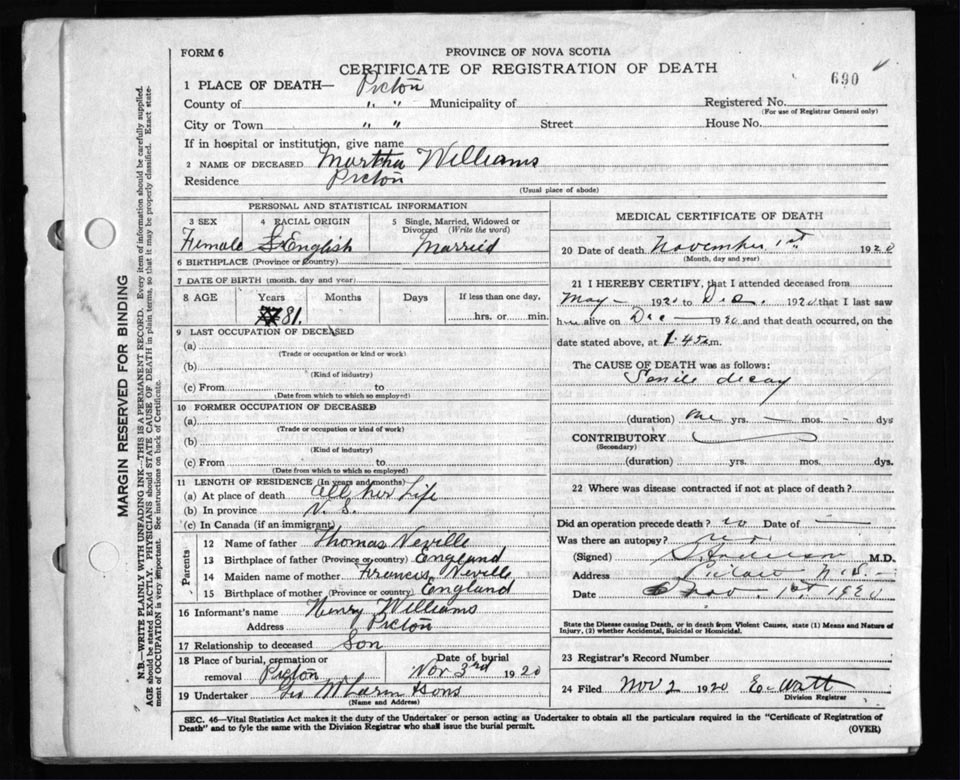 FORM 6
PROVINCE OF NOVA SCOTIA
CERTIFICATE OF REGISTRATION OF DEATH
690
1 PLACE OF DEATH— Pictou
County of " " Municipality of Registered No.
(For use of Registrar General only)
City or Town " " Street House No.
If in hospital or institution, give name
2 NAME OF DECEASED Martha Williams
Residence Pictou
(Usual place of abode)
PERSONAL AND STATISTICAL INFORMATION
3 SEX 4 RACIAL ORIGIN 5 Single, Married, Widowed or Divorced (Write the word)
Female English Married
6 BIRTHPLACE (Province or Country)
7 DATE OF BIRTH (month, day and year)
8 AGE Years Months Days If less than one day,
81. hrs. or min.
9 LAST OCCUPATION OF DECEASED
(a)
(Trade or occupation or kind or work)
(b)
(Kind of industry)
(c) From to
(Date from which to which so employed)
10 FORMER OCCUPATION OF DECEASED
(a)
(Trade or occupation or kind of work)
(b)
(Kind of industry)
(c) From to
(Date from which to which so employed)
11 LENGTH OF RESIDENCE (In years and months)
(a) At place of death All her Life
(b) In province N. S.
(c) In Canada (if an immigrant)
Parents
12 Name of father Thomas Neville
13 Birthplace of father (Province or country) England
14 Maiden name of mother Francis Neville
15 Birthplace of mother (Province or country) England
16 Informant's name Henry Williams
Address Pictou
17 Relationship to deceased Son
18 Place of burial, cremation or removal Pictou Date of burial Nov 3rd 1920
19 Undertaker Geo Sons
(Name and Address)
MEDICAL CERTIFICATE OF DEATH
20 Date of death November 1st 1920
(Month, day and year)
21 I HEREBY CERTIFY, that I attended deceased from
May — 1920 to Dec. 1920 that I last saw
h alive on Dec — 1920 and that death occurred, on the
date stated above, at 1.45 m.
The CAUSE OF DEATH was as follows:
Senile decay
(duration) one yrs. — mos. — dys
CONTRIBUTORY
(Secondary)
(duration) yrs. mos. dys.
22 Where was disease contracted if not at place of death?
Did an operation precede death? no Date of —
Was there an autopsy? no
(Signed) M.D.
Address
Date Nov. 1st 1920
State the Disease causing Death, or in death from Violent Causes, state (1) Means and Nature of
Injury, (2) whether Accidental, Suicidal or Homicidal.
23 Registrar's Record Number
24 Filed Nov 2 1920 E. Watt
Division Registrar
SEC. 46—Vital Statistics Act makes it the duty of the Undertaker or person acting as Undertaker to obtain all the particulars required in the "Certificate of Registration of
Death" and to fyle the same with the Division Registrar who shall issue the burial permit.
(OVER)
MARGIN RESERVED FOR BINDING
N.B.—WRITE PLAINLY WITH UNFADING INK—THIS IS A PERMANENT RECORD. Every item of information should be carefully supplied.
AGE should be stated EXACTLY. PHYSICIANS should STATE CAUSE OF DEATH in plain terms, so that it may be properly classified. Exact statement
of OCCUPATION is very important. See instructions on back of Certificate.